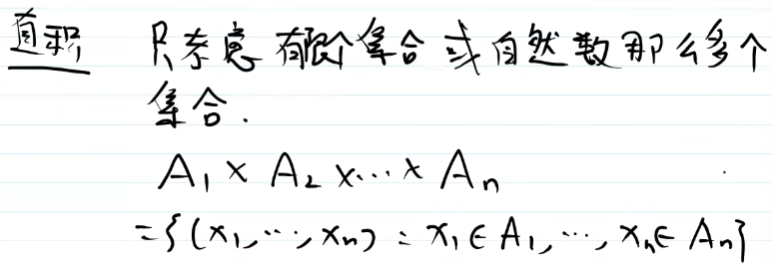 直积 只考虑有限个集合或自然数那么多个
集合.
A₁ × A₂ × ⋯ × Aₙ
= { (x₁, ⋯, xₙ) : x₁ ∈ A₁, ⋯, xₙ ∈ Aₙ }